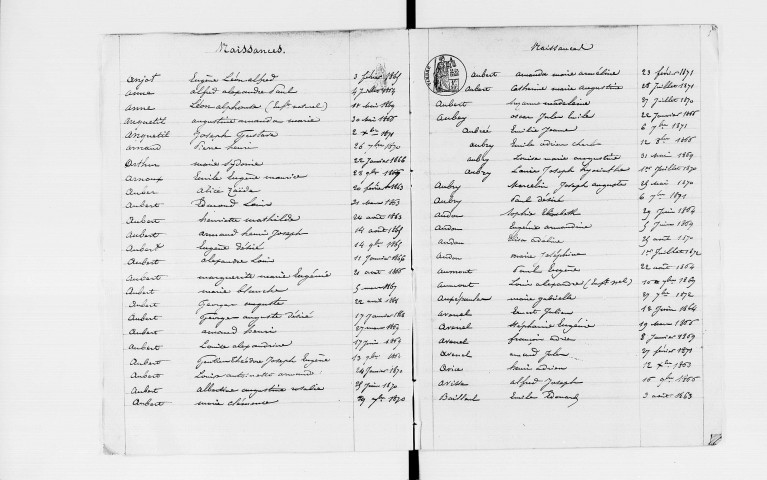 Naissances.
Anjot Eugène Léon alfred 3 février 1865
anne alfred alexandre Paul 1864
anne Léon alphonse (Enft nat nel) 18 mai 1869
anquetil augustine amanda marie 30 mai 1866
anquetil Joseph Gustave 2 xbre 1871
arnaud Pierre henri 26 7bre 1870
arthur marie Sydonie 22 Janvier 1866
arnoux Emile Eugène maurice 28 9bre 1869
auber alice Zaïde 20 février 1863
aubert Edmond Louis 1863
aubert henriette mathilde 24 août 1863
aubert armand henri Joseph 14 août 1865
aubert Eugène Désiré 14 9bre 1865
aubert alexandre Louis 11 Janvier 1866
aubert marguerite marie Eugénie 20 août 1866
aubert marie blanche 5 mars 1867
aubert Georges auguste 22 août
aubert Georges auguste Désiré 17 Janvier
aubert amand henri 27 mars 1869
aubert Louise alexandrine 17 Juin 1869
aubert Théodore Joseph Eugène 13 9bre
aubert Louise antoinette 24 Janvier 1870
aubert albertine augustine 25 Juin 1870
aubert marie clémence 29 1870
Naissances
TIMBRE
aubert amanda marie armeline 23 février 1871
aubert Catherine marie augustine 28 Juillet 1871
Aubert Suzanne madeleine 27 Juillet 1870
Aubey oscar Jules Emile 22 Janvier 1866
Aubrée Emilie Jeanne 6 7bre 1871
aubry Emile adrien charles 12 8bre 1866
aubry Louise marie augustine 31 Mai 1869
aubry Louis Joseph hyacinthe 1er Juillet 1870
Aubry Marcelin Joseph auguste 25 mai 1870
Aubry Paul Désiré 6 7bre 1871
Audou Sophie Elisabeth 29 Juin 1864
Audou Eugénie amandine 5 1869
Audou Elisa adeline 25 août 1870
Audou marie Joséphine 1er Juillet 1872
aumont Emile Eugène 22 août 1864
aumont Louis alexandre (Enft nel) 10 9bre 1869
marie gabrielle 27 7bre 1872
Avenel Ernest Julien 18 février 1864
Avenel Stéphanie Eugénie 19 mars 1866
avenel françois adrien 8 Janvier 1869
avenel amand Jules 27 février 1871
Avice henri adrien 12 xbre 1863
Avisse alfred Joseph 16 9bre 1866
Baillard Emile Edouard 3 août 1863